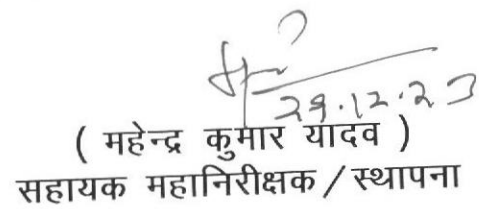 29.12.23
( महेन्द्र कुमार यादव )
सहायक महानिरीक्षक / स्थापना